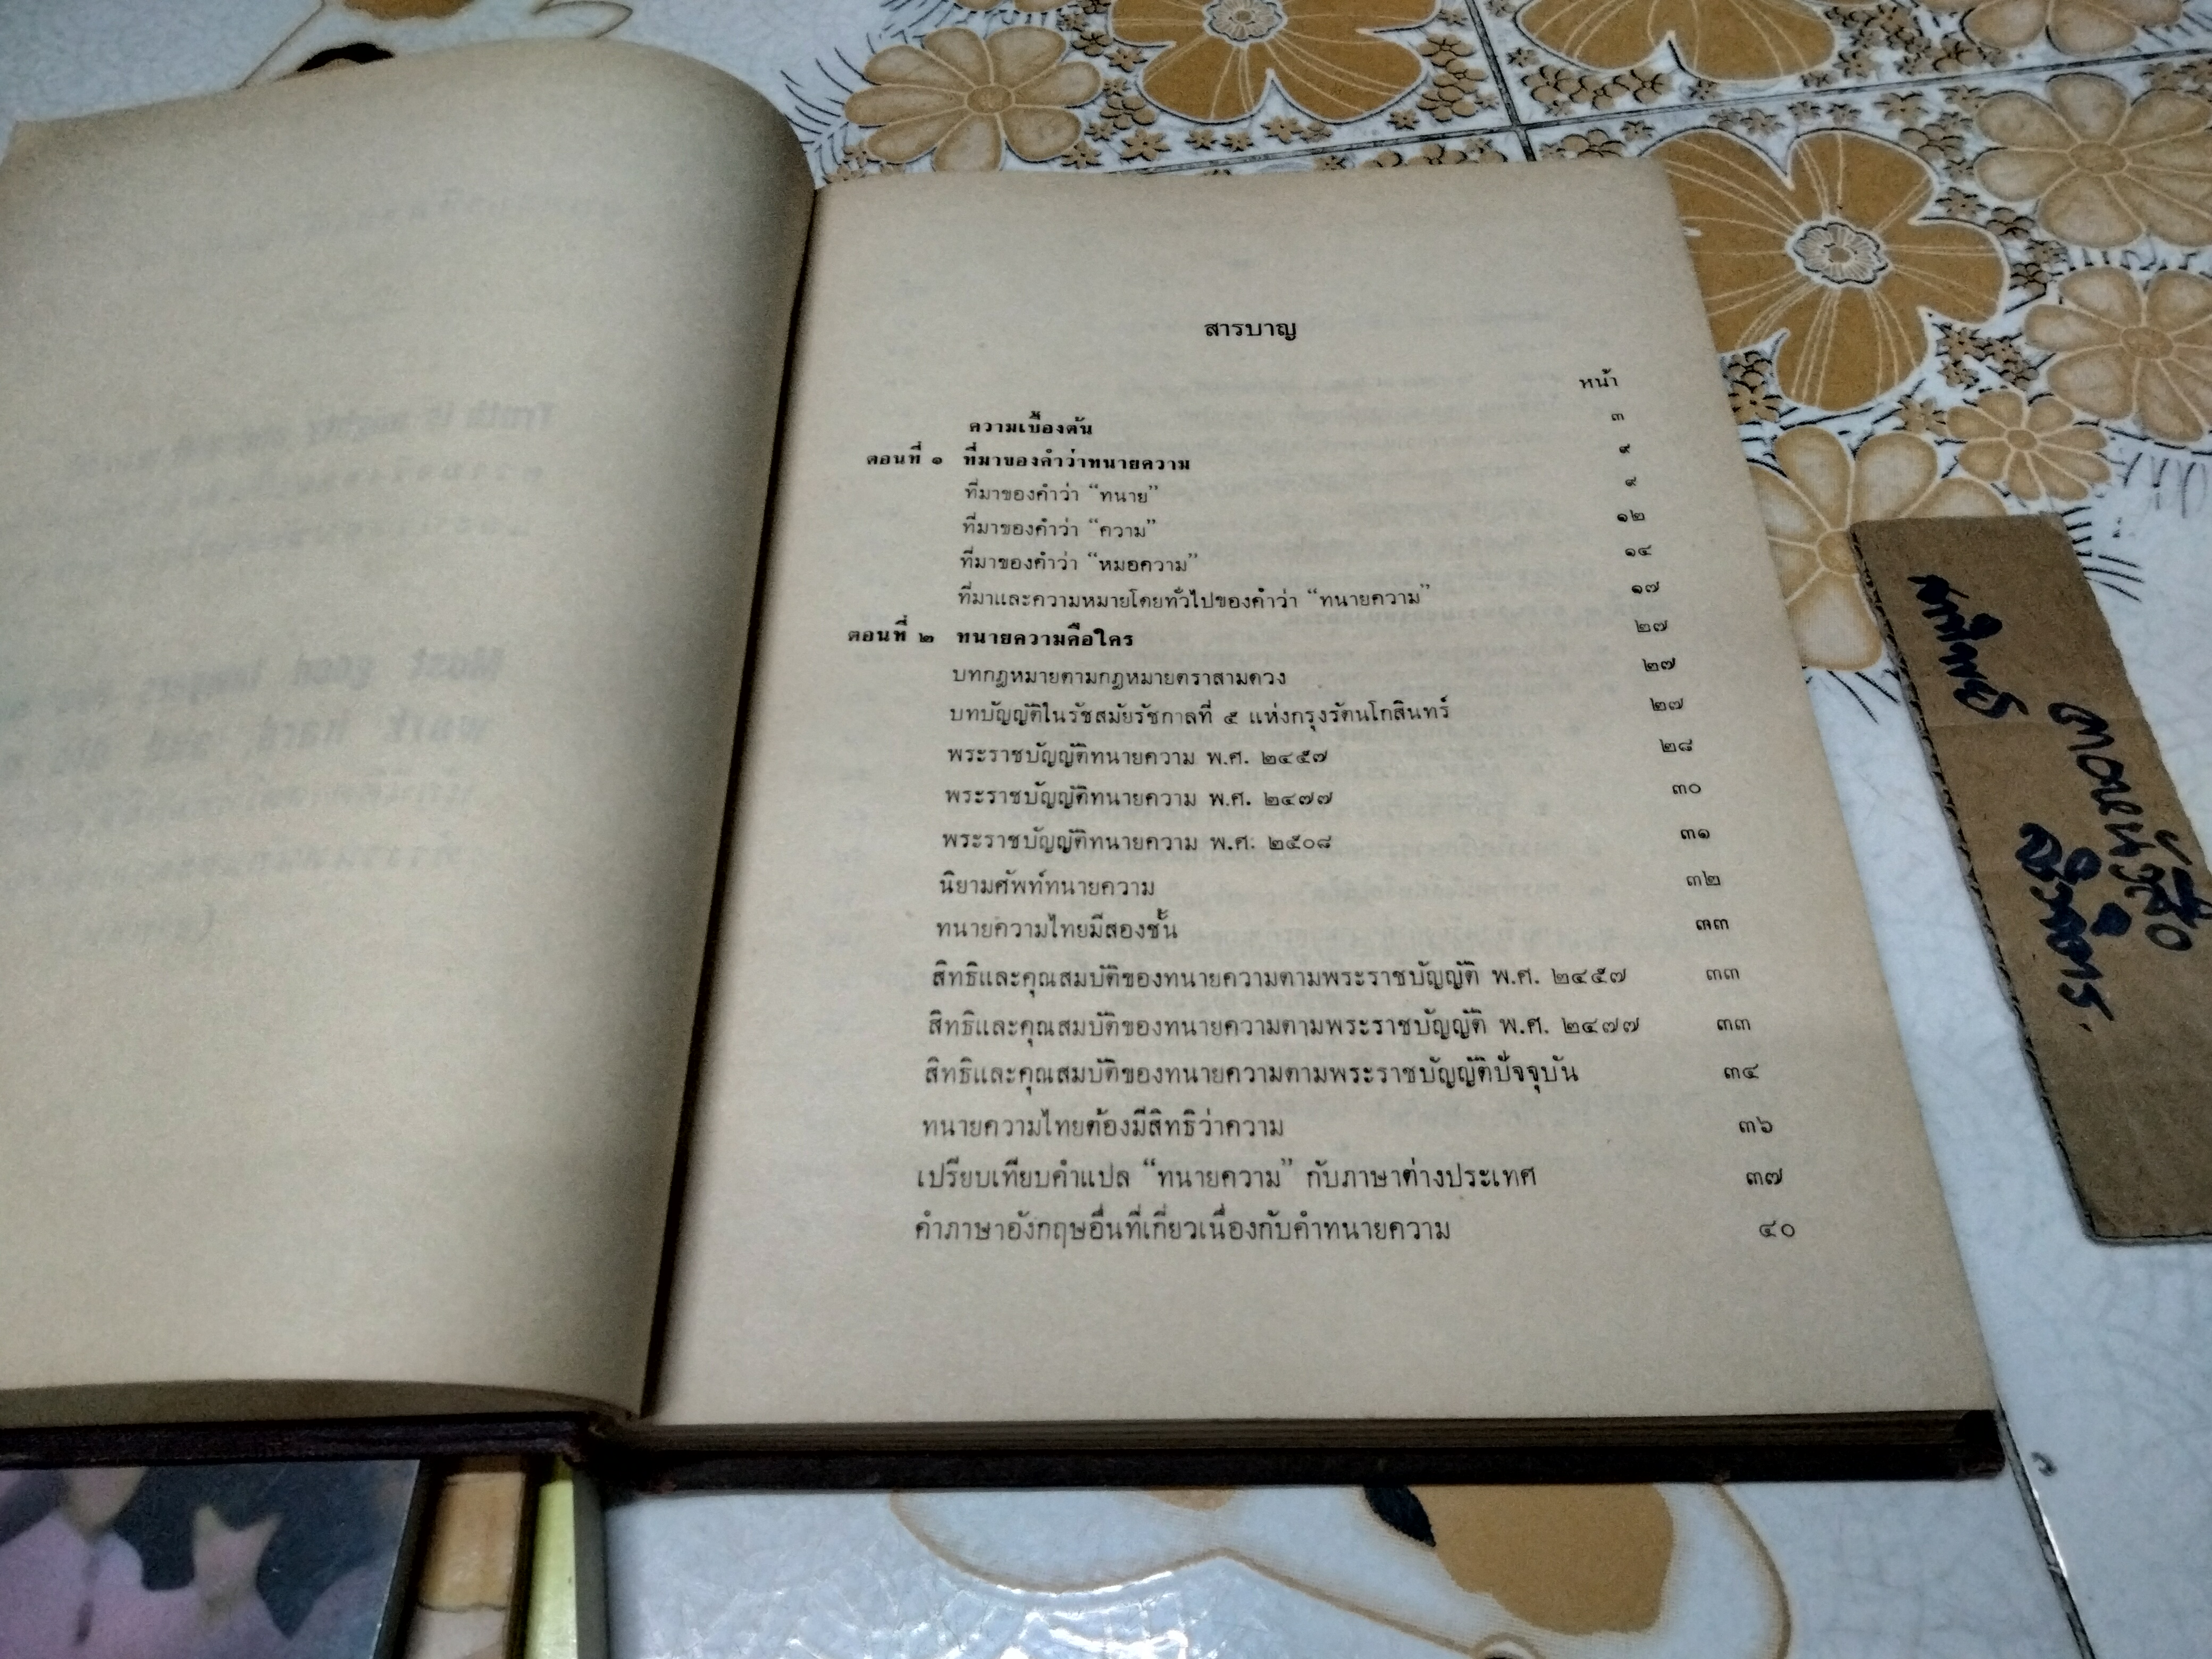 สารบาญ
หน้า
ความเบื้องต้น ๓
ตอนที่ ๑ ที่มาของคำว่าทนายความ ๙
ที่มาของคำว่า “ทนาย” ๙
ที่มาของคำว่า “ความ” ๑๒
ที่มาของคำว่า “หมอความ” ๑๔
ที่มาและความหมายโดยทั่วไปของคำว่า “ทนายความ” ๑๗
ตอนที่ ๒ ทนายความคือใคร ๒๗
บทกฎหมายตามกฎหมายตราสามดวง ๒๗
บทบัญญัติในรัชสมัยรัชกาลที่ ๕ แห่งกรุงรัตนโกสินทร์ ๒๗
พระราชบัญญัติทนายความ พ.ศ. ๒๔๕๗ ๒๘
พระราชบัญญัติทนายความ พ.ศ. ๒๔๗๗ ๓๐
พระราชบัญญัติทนายความ พ.ศ. ๒๕๐๘ ๓๑
นิยามศัพท์ทนายความ ๓๒
ทนายความไทยมีสองชั้น ๓๓
สิทธิและคุณสมบัติของทนายความตามพระราชบัญญัติ พ.ศ. ๒๔๕๗ ๓๓
สิทธิและคุณสมบัติของทนายความตามพระราชบัญญัติ พ.ศ. ๒๔๗๗ ๓๓
สิทธิและคุณสมบัติของทนายความตามพระราชบัญญัติปัจจุบัน ๓๔
ทนายความไทยต้องมีสิทธิว่าความ ๓๖
เปรียบเทียบคำแปล “ทนายความ” กับภาษาต่างประเทศ ๓๗
คำภาษาอังกฤษอื่นที่เกี่ยวเนื่องกับคำทนายความ ๔๐